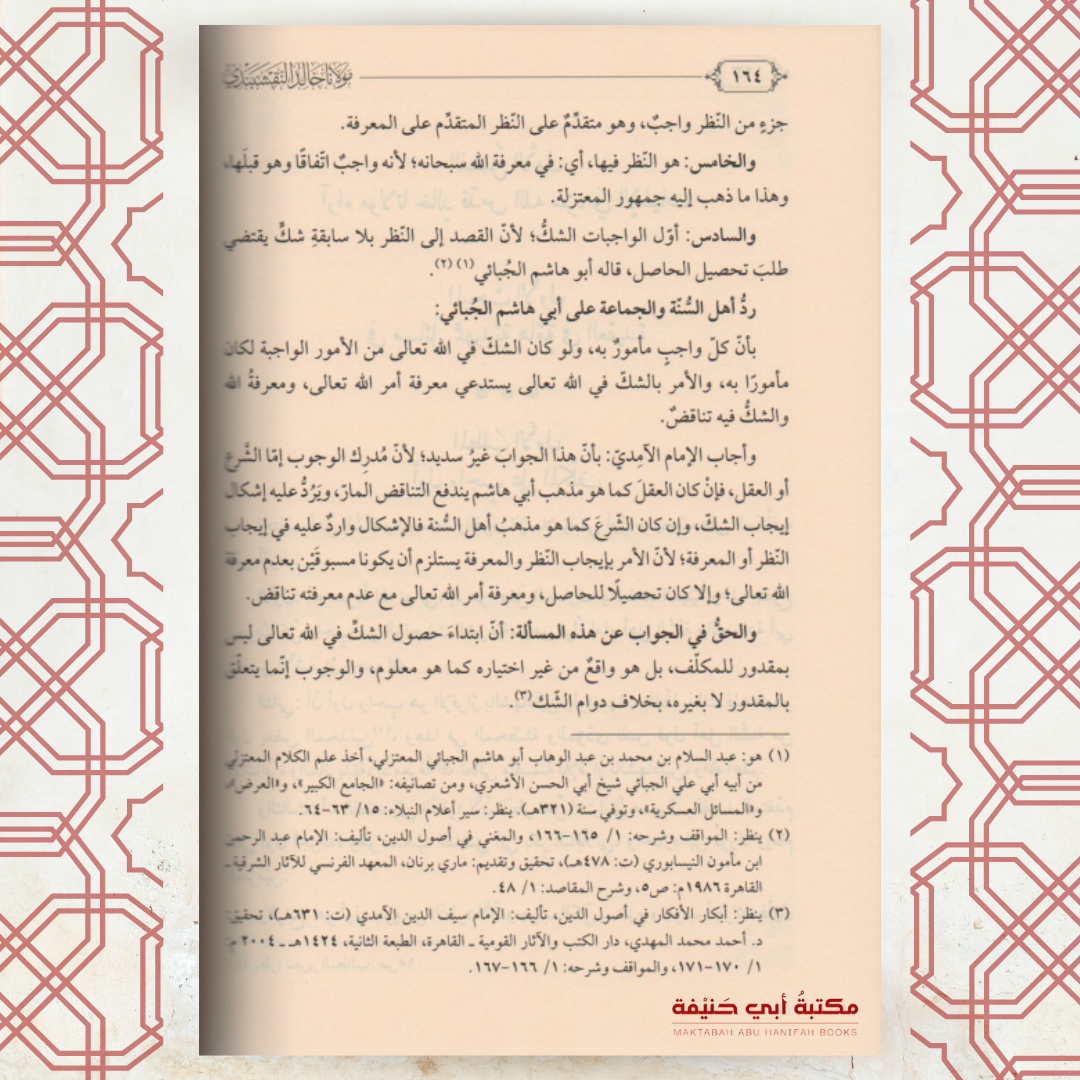 ١٦٤
مولانا خالد النقشبندي
جزءٍ من النّظر واجبٌ، وهو متقدِّمٌ على النّظر المتقدِّم على المعرفة.
والخامس: هو النّظر فيها، أي: في معرفة الله سبحانه؛ لأنه واجبٌ اتّفاقًا وهو قبلَها،
وهذا ما ذهب إليه جمهور المعتزلة.
والسادس: أوّل الواجبات الشكُّ؛ لأنّ القصد إلى النّظر بلا سابقةِ شكٍّ يقتضي
طلبَ تحصيل الحاصل، قاله أبو هاشم الجُبائي(١) (٢).
ردُّ أهل السُّنّة والجماعة على أبي هاشم الجُبائي:
بأنّ كلّ واجبٍ مأمورٌ به، ولو كان الشكّ في الله تعالى من الأمور الواجبة لكان
مأمورًا به، والأمر بالشكّ في الله تعالى يستدعي معرفة أمر الله تعالى، ومعرفةُ الله
والشكُّ فيه تناقضٌ.
وأجاب الإمام الآمِديّ: بأنّ هذا الجواب غيرُ سديد؛ لأنّ مُدرِك الوجوب إمّا الشَّرع
أو العقل، فإنْ كان العقلَ كما هو مذهب أبي هاشم يندفع التناقض المارّ، ويَرُدُّ عليه إشكال
إيجاب الشكّ، وإن كان الشّرعَ كما هو مذهبُ أهل السُّنة فالإشكال واردٌ عليه في إيجاب
النّظر أو المعرفة؛ لأنّ الأمر بإيجاب النّظر والمعرفة يستلزم أن يكونا مسبوقَيْن بعدم معرفة
الله تعالى؛ وإلا كان تحصيلًا للحاصل، ومعرفة أمر الله تعالى مع عدم معرفته تناقض.
والحقُّ في الجواب عن هذه المسألة: أنّ ابتداءَ حصول الشكِّ في الله تعالى ليس
بمقدور للمكلّف، بل هو واقعٌ من غير اختياره كما هو معلوم، والوجوب إنّما يتعلّق
بالمقدور لا بغيره، بخلاف دوام الشّك(٣).
(١) هو: عبد السلام بن محمد بن عبد الوهاب أبو هاشم الجبائي المعتزلي، أخذ علم الكلام المعتزلي
من أبيه أبي علي الجبائي شيخ أبي الحسن الأشعري، ومن تصانيفه: «الجامع الكبير»، و«العرض»،
و«المسائل العسكرية»، وتوفي سنة (٣٢١هـ). ينظر: سير أعلام النبلاء: ١٥/ ٦٣-٦٤.
(٢) ينظر: المواقف وشرحه: ١/ ١٦٥-١٦٦، والمغني في أصول الدين، تأليف: الإمام عبد الرحمن
ابن مأمون النيسابوري (ت: ٤٧٨هـ)، تحقيق وتقديم: ماري برنان، المعهد الفرنسي للآثار الشرقية ـ
القاهرة ١٩٨٦م: ص٥، وشرح المقاصد: ١/ ٤٨.
(٣) ينظر: أبكار الأفكار في أصول الدين، تأليف: الإمام سيف الدين الآمدي (ت: ٦٣١هـ)، تحقيق:
د. أحمد محمد المهدي، دار الكتب والآثار القومية ـ القاهرة، الطبعة الثانية، ١٤٢٤هـ ـ ٢٠٠٤م:
١/ ١٧٠-١٧١، والمواقف وشرحه: ١/ ١٦٦-١٦٧.
مكتبةُ أبي حَنيْفة
MAKTABAH ABU HANIFAH BOOKS